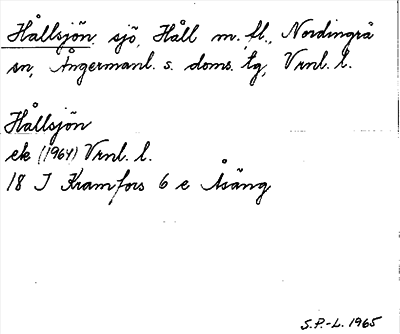 Hållsjön, sjö, Håll m. fl., Nordingrå
sn, Ångermanl. s. doms. tg, Vrnl. l.
Hållsjön
ek (1964) Vrnl. l.
18 I Kramfors 6 e Åsäng
S.P.-L. 1965